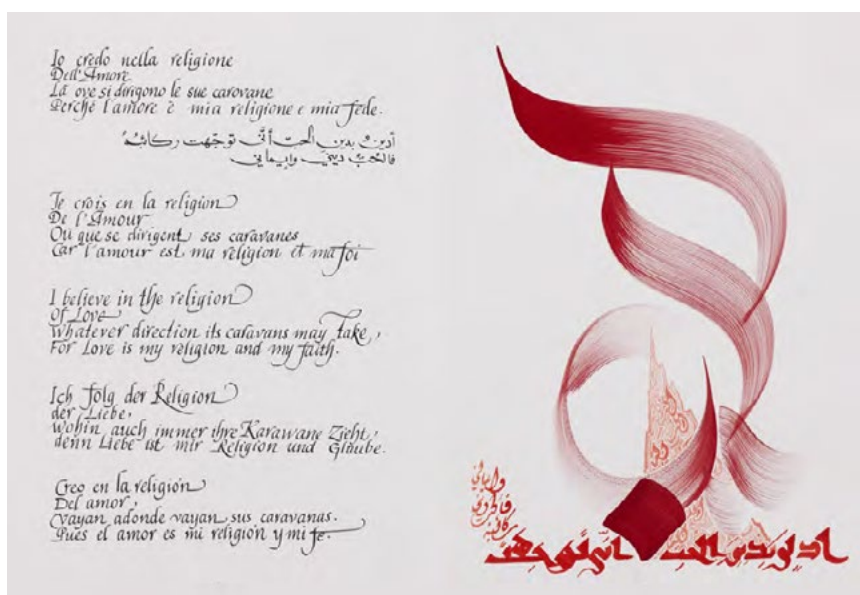 Io credo nella religione
Dell'Amore
Là ove si dirigono le sue carovane
Perché l'amore è mia religione e mia fede.
أدين بدين الحبّ أنَّى توجّهت ركائبُهُ
فالحبّ ديني وإيماني
Je crois en la religion
De l'Amour
Où que se dirigent ses caravanes
Car l'amour est ma religion et ma foi
I believe in the religion
Of Love
Whatever direction its caravans may take,
For Love is my religion and my faith.
Ich folg der Religion
der Liebe,
wohin auch immer ihre Karawane Zieht,
denn Liebe ist mir Religion und Glaube.
Creo en la religión
Del amor,
Vayan adonde vayan sus caravanas.
Pues el amor es mi religión y mi fe.
ادين بدين الحب انّى توجهت